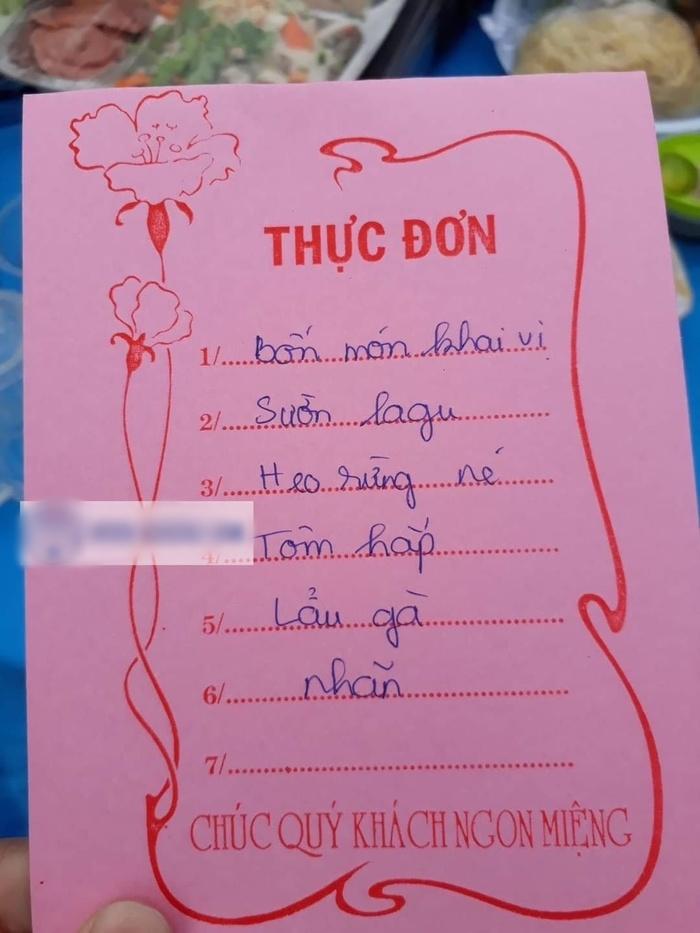 THỰC ĐƠN
1/ bốn món khai vị
2/ Sườn lagu
3/ Heo rừng né
4/ Tôm hấp
5/ Lẩu gà
6/ nhãn
7/
CHÚC QUÝ KHÁCH NGON MIỆNG